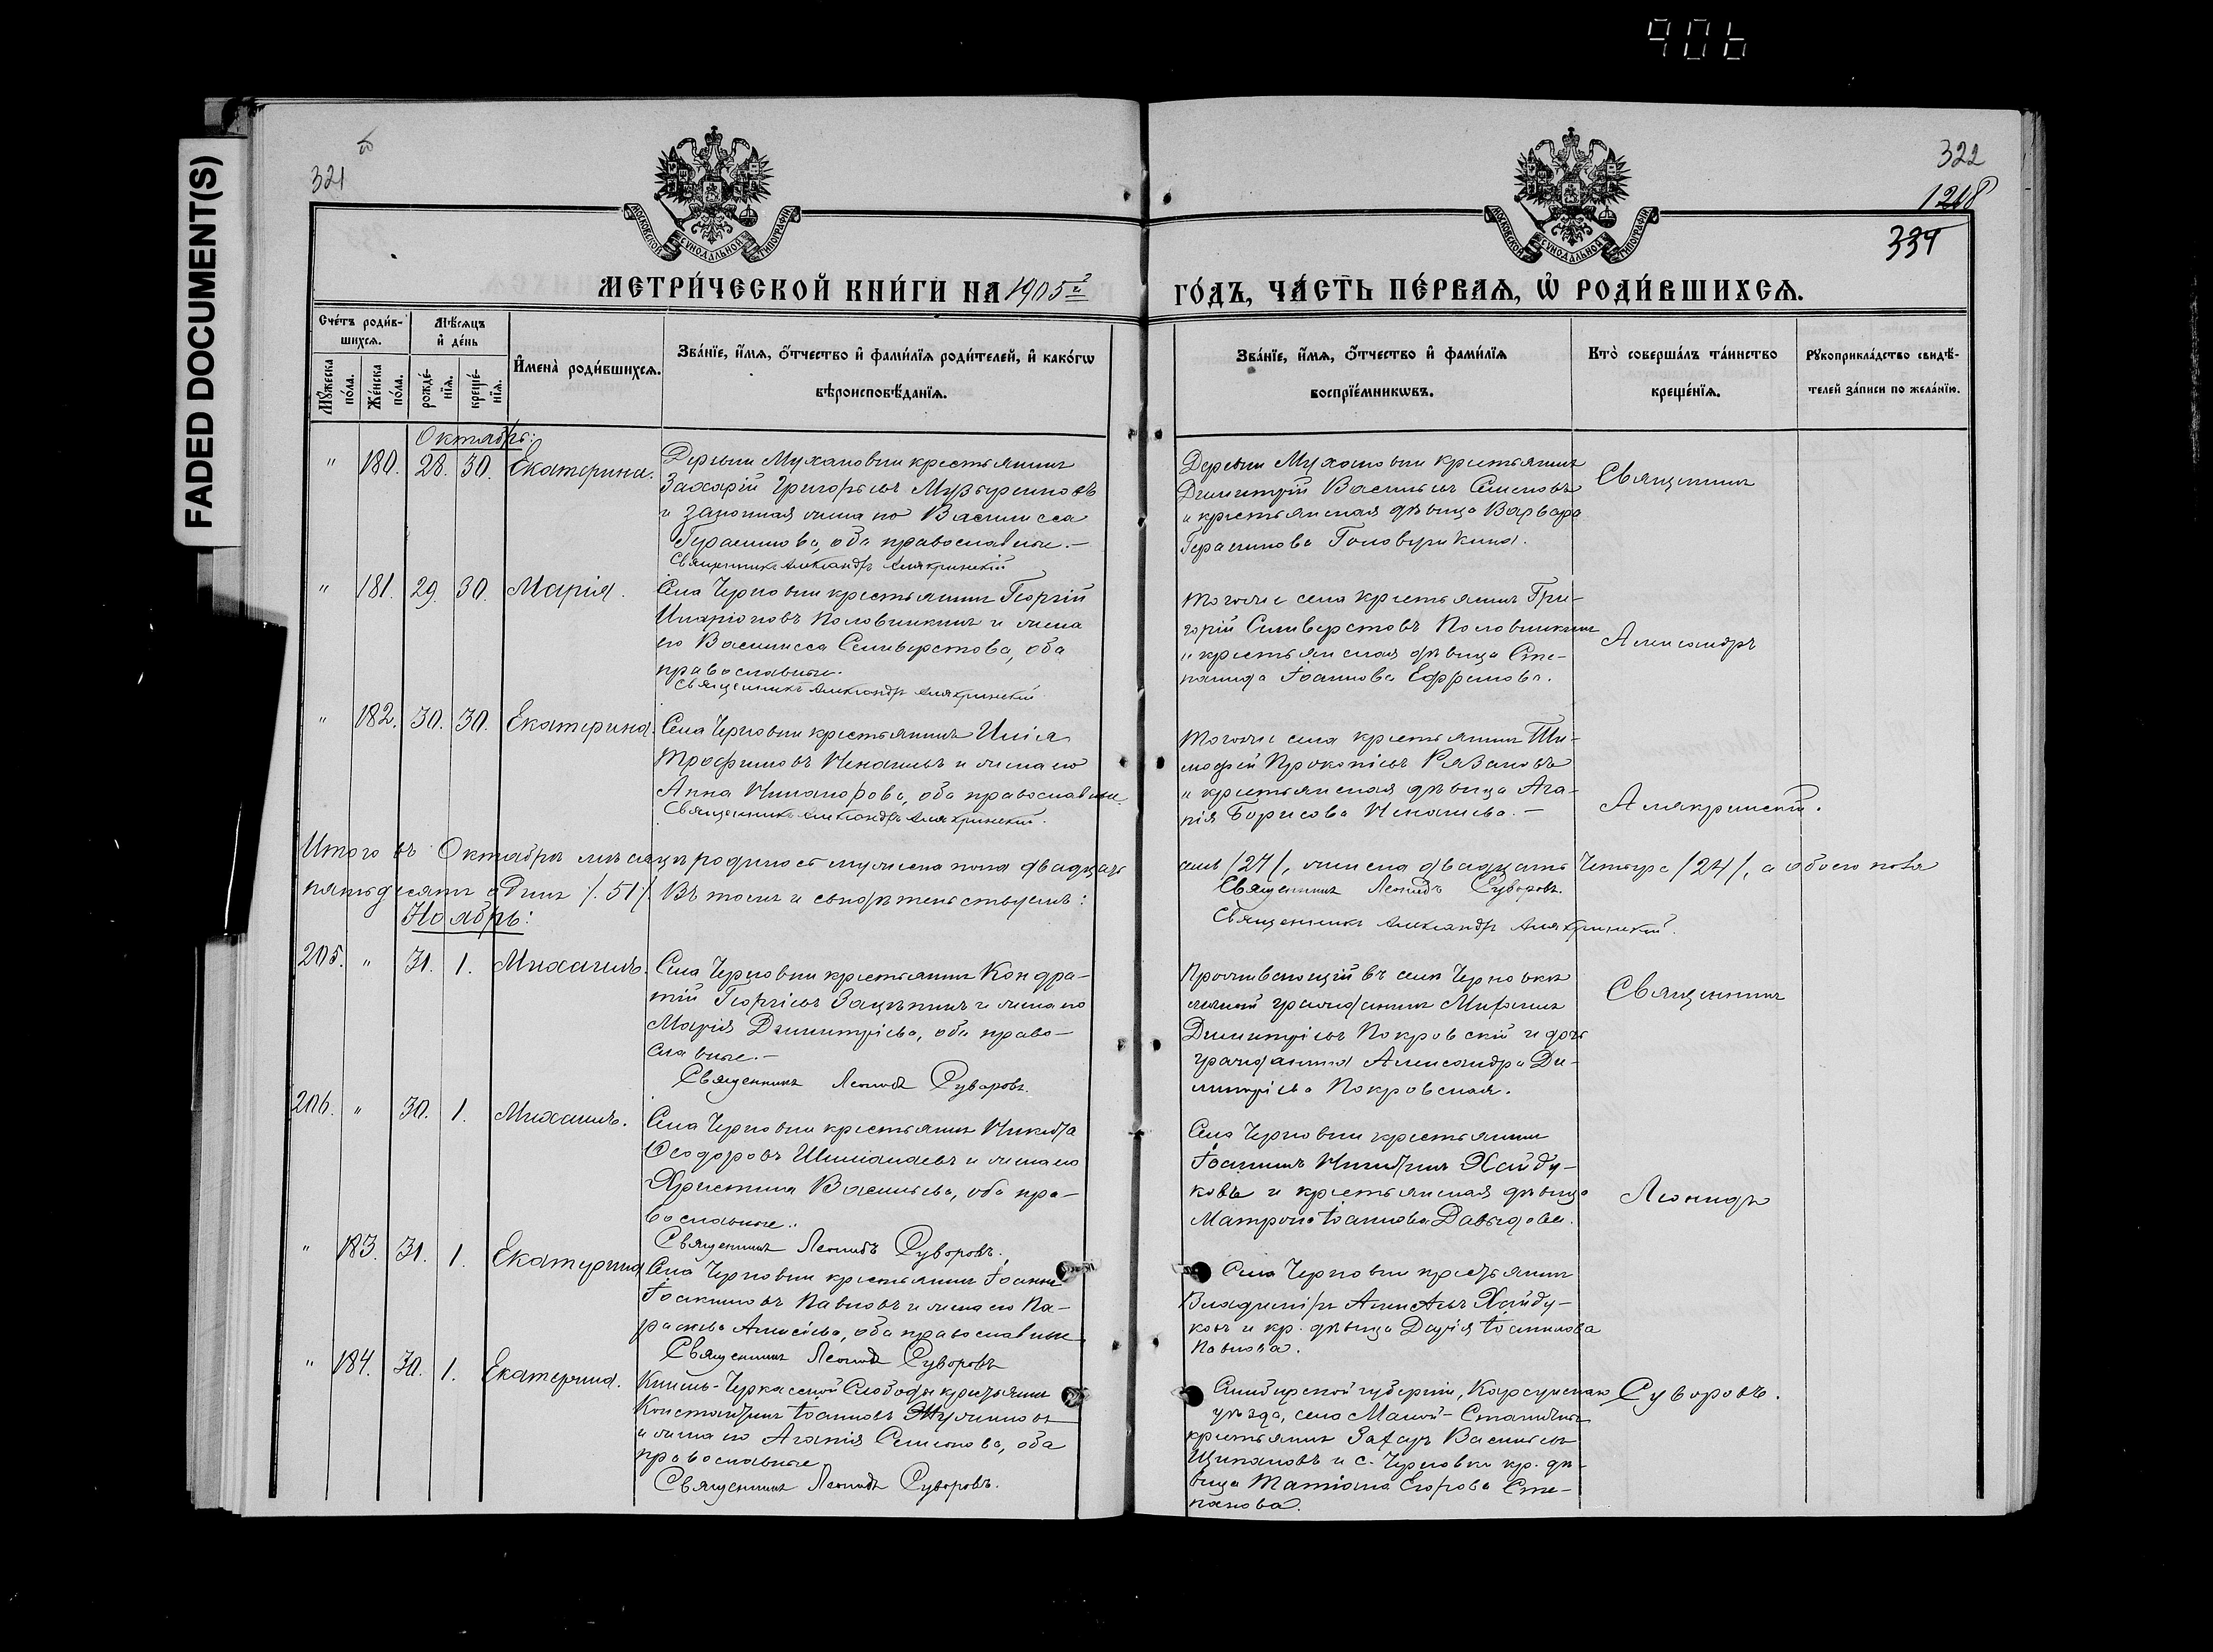 906
FADED DOCUMENT(S)
321
322
1218
334
МОСКОВСКОЙ СѴНОДАЛЬНОЙ ТИПОГРАФІИ
МОСКОВСКОЙ СѴНОДАЛЬНОЙ ТИПОГРАФІИ
МЕТРИ́ЧЕСКОЙ КНИ́ГИ НА 1905й
ГО́ДЪ, ЧА́СТЬ ПЕ́РВАѦ, Ѡ҆ РОДИ́ВШИХСѦ.
Сче́тъ роди́в-
шихсѧ.
Мꙋ́жеска по́ла.
Же́нска по́ла.
Мѣ́сѧцъ
и҆ де́нь
рожде́-
нїѧ.
креще́-
нїѧ.
И҆мена̀ роди́вшихсѧ.
Зва́нїе, и҆́мѧ, ѻ҆́тчество и҆ фами́лїѧ роди́телей, и҆ како́гѡ
вѣроисповѣ́данїѧ.
Зва́нїе, и҆́мѧ, ѻ҆́тчество и҆ фами́лїѧ
воспрїе́мникѡвъ.
Кто̀ соверша́лъ та́инство
креще́нїѧ.
Рꙋкоприкла́дство свидѣ́-
телей за́писи по жела́нїю.
Октябрь:
" 180. 28. 30. Екатерина.
Деревни Мухановки крестьянинъ
Захарій Григорьевъ
и законная жена его Василисса
Герасимова, оба православные.—
Священникъ Александръ Алякринскій
Деревни Мухановки крестьянинъ
Димитрій Васильевъ Семеновъ
и крестьянская дѣвица Варвара
Герасимова
Священникъ
" 181. 29. 30. Марія.
Села Черновки крестьянинъ Георгій
Иларіоновъ Половинкинъ и жена
его Василисса Селиверстова, оба
православные.
Священникъ Александръ Алякринскій
тогоже села крестьянинъ Гри-
горій Селиверстовъ Половинкинъ
и крестьянская дѣвица Сте-
панида Іоаннова Ефремова.
Александръ
" 182. 30. 30. Екатерина.
Села Черновки крестьянинъ Илія
Трофимовъ и жена его
Анна Никанорова, оба православные.
Священникъ Александръ Алякринскій.
тогоже села крестьянинъ Ти-
моѳей Прокопіевъ Рязановъ
и крестьянская дѣвица Ага-
пія Борисова
Алякринскій.
Итого въ Октябрѣ мѣсяцѣ родилось мужска пола двадцать
семь /27/, женска двадцать четыре /24/, а обоего пола
пятьдесятъ одинъ /51/. Въ томъ и свидѣтельствуемъ:
Священникъ Леонидъ Суворовъ.
Священникъ Александръ Алякринскій.
Ноябрь:
205. " 31. 1. Михаилъ.
Села Черновки крестьянинъ Кондра-
тій Георгіевъ Зацѣпинъ и жена его
Марія Димитріева, оба право-
славные.—
Священникъ Леонидъ Суворовъ.
Проживающій въ селѣ Черновкѣ
личный гражданинъ Михаилъ
Димитріевъ Покровскій и дочь
гражданина Александра Ди-
митріева Покровская.
Священникъ
206. " 30. 1. Михаилъ.
Села Черновки крестьянинъ Никита
Ѳеодоровъ и жена его
Христина Васильева, оба пра-
вославные.
Священникъ Леонидъ Суворовъ.
Села Черновки крестьянинъ
Іоаннъ Никитинъ Хайду-
ковъ и крестьянская дѣвица
Матрона Іоаннова Давыдова.
Леонидъ
" 183. 31. 1. Екатерина
Села Черновки крестьянинъ Іоаннъ
Іоакимовъ Павловъ и жена его Па-
раскева Алексіева, оба православные
Священникъ Леонидъ Суворовъ
Села Черновки крестьянинъ
Владиміръ Хайду-
ковъ и кр. дѣвица Дарія Іоаннова
Павлова.
" 184. 30. 1. Екатерина.
Кинель-Черкасской Слободы крестьянинъ
Константинъ Іоанновъ
и жена его Агапія Семенова, оба
православные
Священникъ Леонидъ Суворовъ.
Симбирской губерніи, Карсунскаго
уѣзда, села Малой-Станичны
крестьянинъ Захаръ Васильевъ
Щипановъ и с. Черновки кр. дѣ-
вица Татіана Егорова Сте-
панова.
Суворовъ.